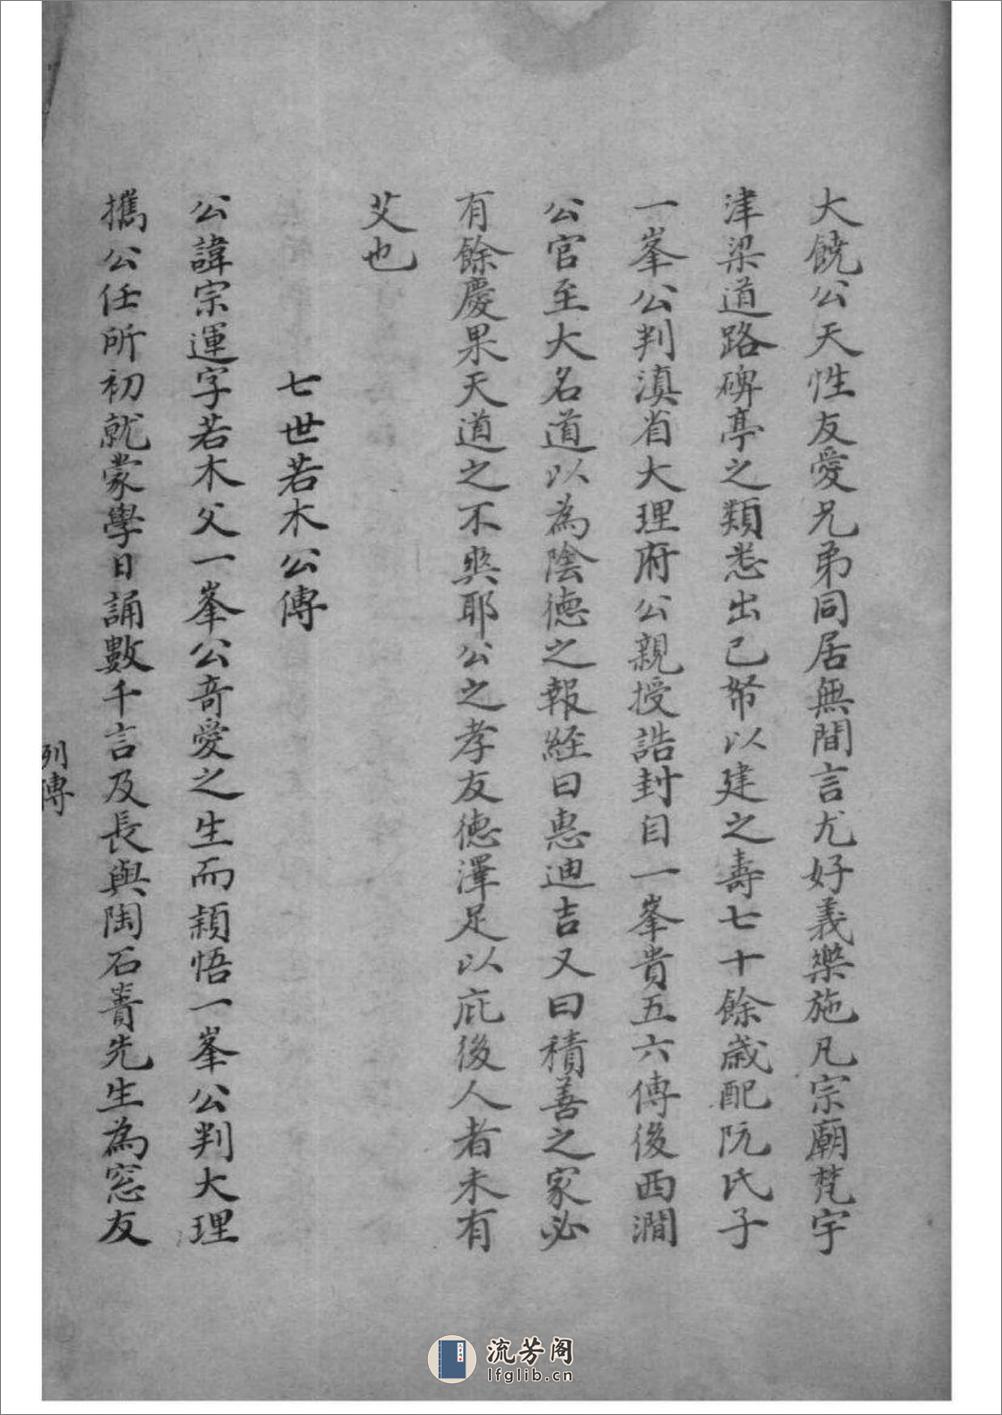 大饒公天性友愛兄弟同居無間言尤好義樂施凡宗廟梵宇
津梁道路碑亭之類悉出己帑以建之壽七十餘歲配阮氏子
一峯公判滇省大理府公親授誥封自一峯貴五六傳後西澗
公官至大名道以為陰德之報經曰惠迪吉又曰積善之家必
有餘慶果天道之不爽耶公之孝友德澤足以庇後人者未有
艾也
七世若木公傳
公諱宗運字若木父一峯公奇愛之生而穎悟一峯公判大理
攜公任所初就蒙學日誦數千言及長與陶石青先生為窓友
列傳
流芳阁
lfglib.cn